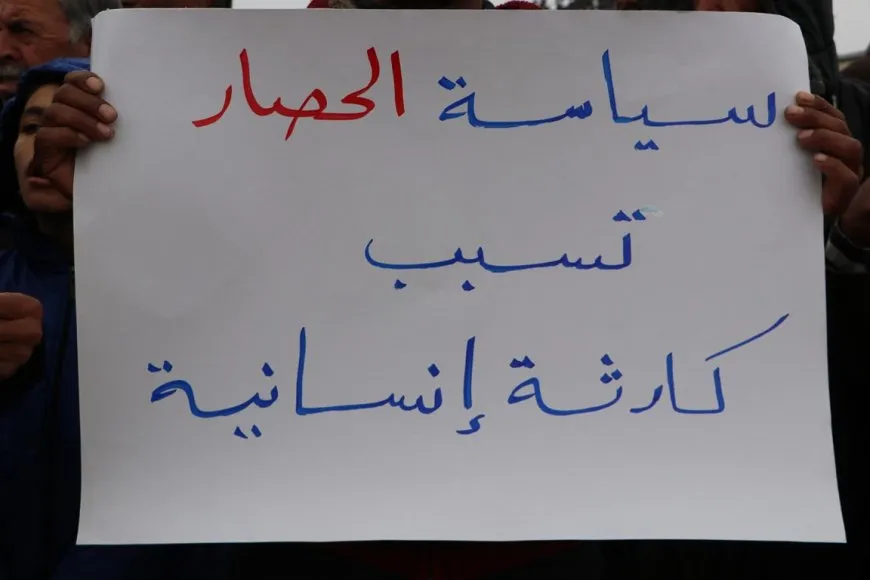 سياسة الحصار
تسبب
كارثة إنسانية